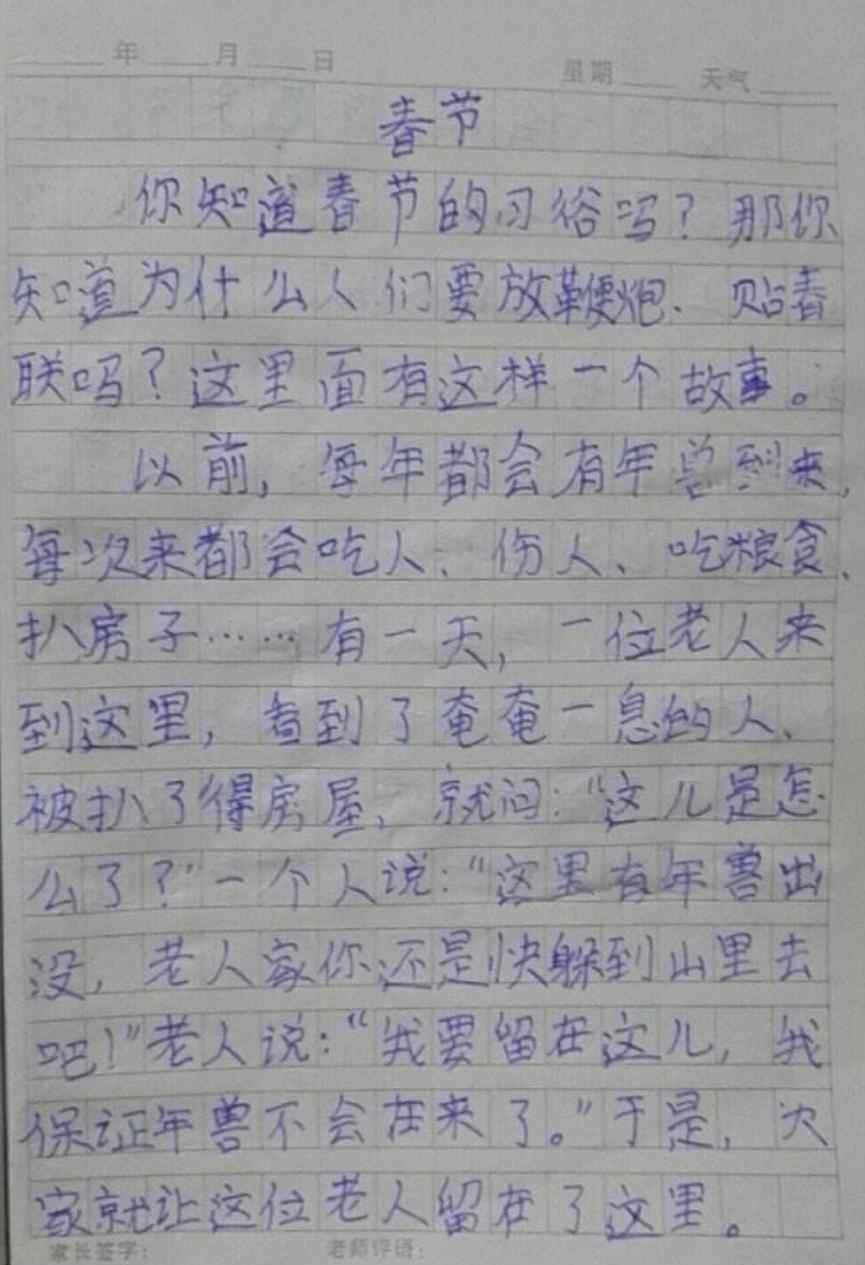 年 月 日 星期 天气
春节
你知道春节的习俗吗？那你
知道为什么人们要放鞭炮、贴春
联吗？这里面有这样一个故事。
以前，每年都会有年兽到来，
每次来都会吃人、伤人、吃粮食、
扒房子……有一天，一位老人来
到这里，看到了奄奄一息的人、
被扒了得房屋，就问：“这儿是怎
么了？”一个人说：“这里有年兽出
没，老人家你还是快躲到山里去
吧！”老人说：“我要留在这儿，我
保证年兽不会在来了。”于是，大
家就让这位老人留在了这里。
家长签字： 老师评语：